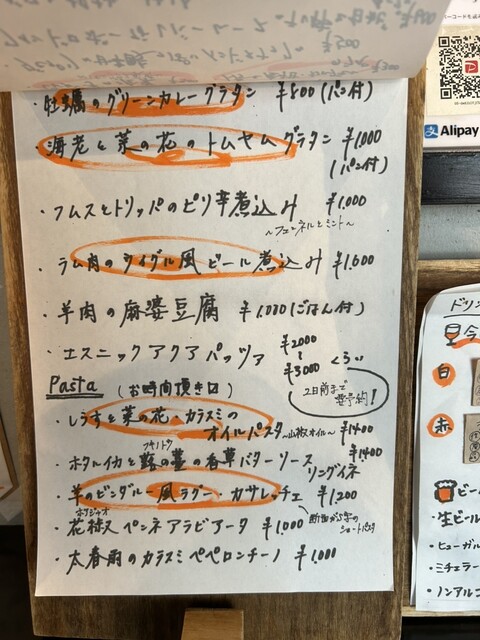 ¥500
・牡蠣のグリーンカレーグラタン ¥800(パン付)
・海老と菜の花のトムヤムグラタン ¥1,000
(パン付)
・フムスとトリッパのピリ辛煮込み ¥1,000
〜フェンネルとミント〜
・ラム肉のウイグル風ビール煮込み ¥1,600
・羊肉の麻婆豆腐 ¥1,080(ごはん付)
・エスニックアクアパッツァ ¥2000
〜
¥3000 くらい
2日前まで
要予約!
Pasta (お時間頂き□)
・しらすと菜の花・カラスミの
オイルパスタ〜山椒オイル〜 ¥1400
フキノトウ
・ホタルイカと蕗の薹の香草バターソース ¥1,400
リングイネ
・羊のビンダルー風ラグー カサレッチェ ¥1,200
断面がS字の
ショートパスタ
ホワジャオ
・花椒ペンネアラビアータ ¥1,000
・太春雨のカラスミペペロンチーノ ¥1,000
Alipay
ドリン
今
白
赤
ビー
生ビール
・ヒューガル
・ミチェラー
・ノンアルコ